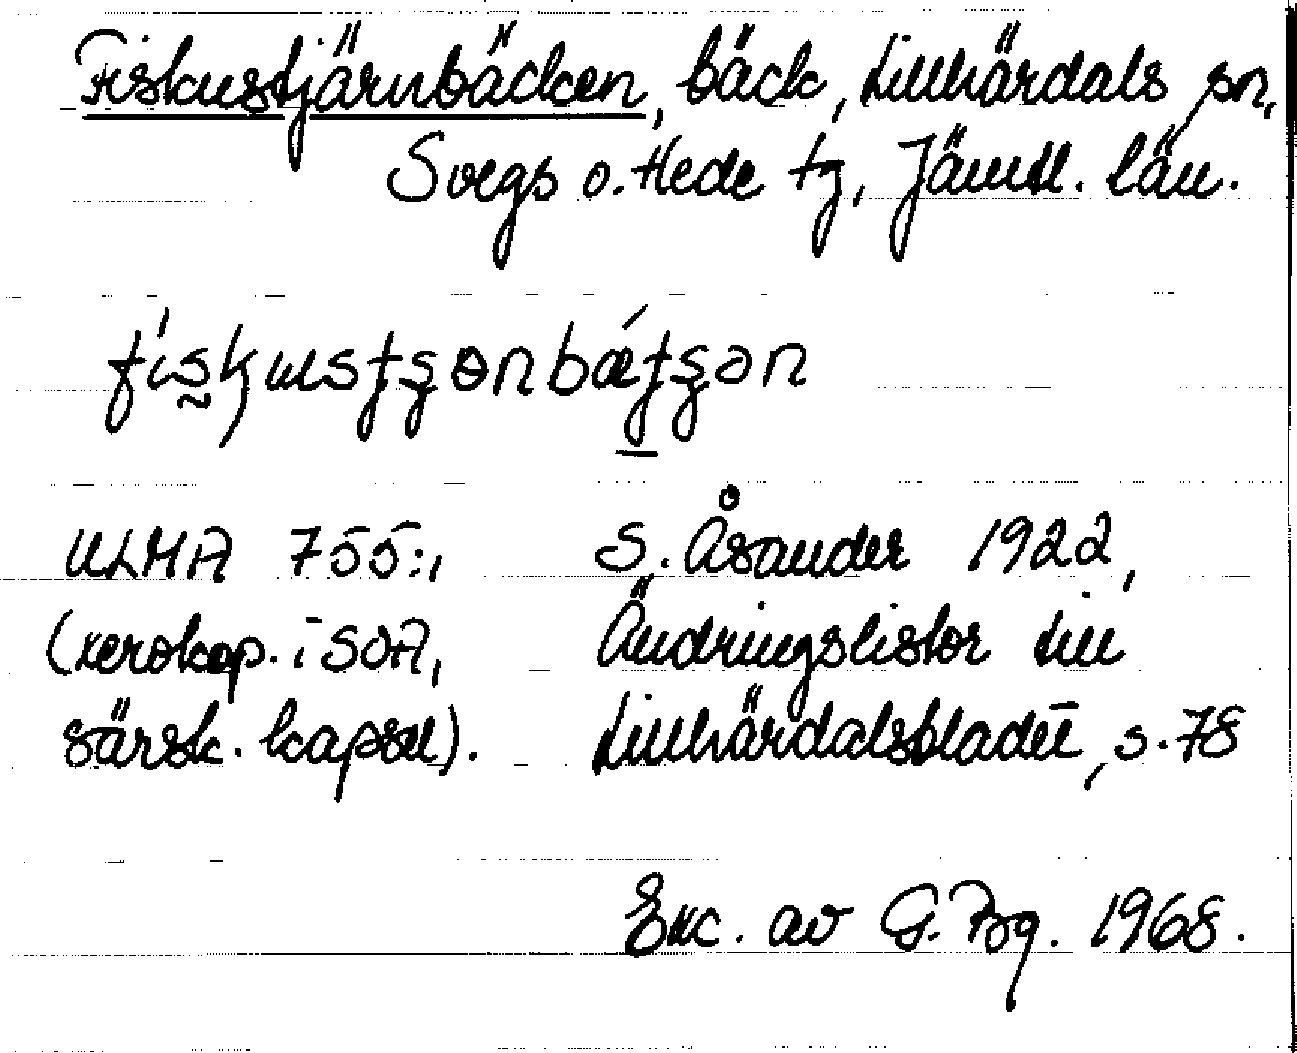 Fiskustjärnbäcken, bäck, Lillhärdals sn,
Svegs o. Hede tg, Jämtl. län.
ULMA 755:, S. Åsander 1922,
(xerokop. i SOA, Ändringslistor till
särsk. kapsel). Lillhärdalsbladet, s. 78
Exc. av G. Bg. 1968.